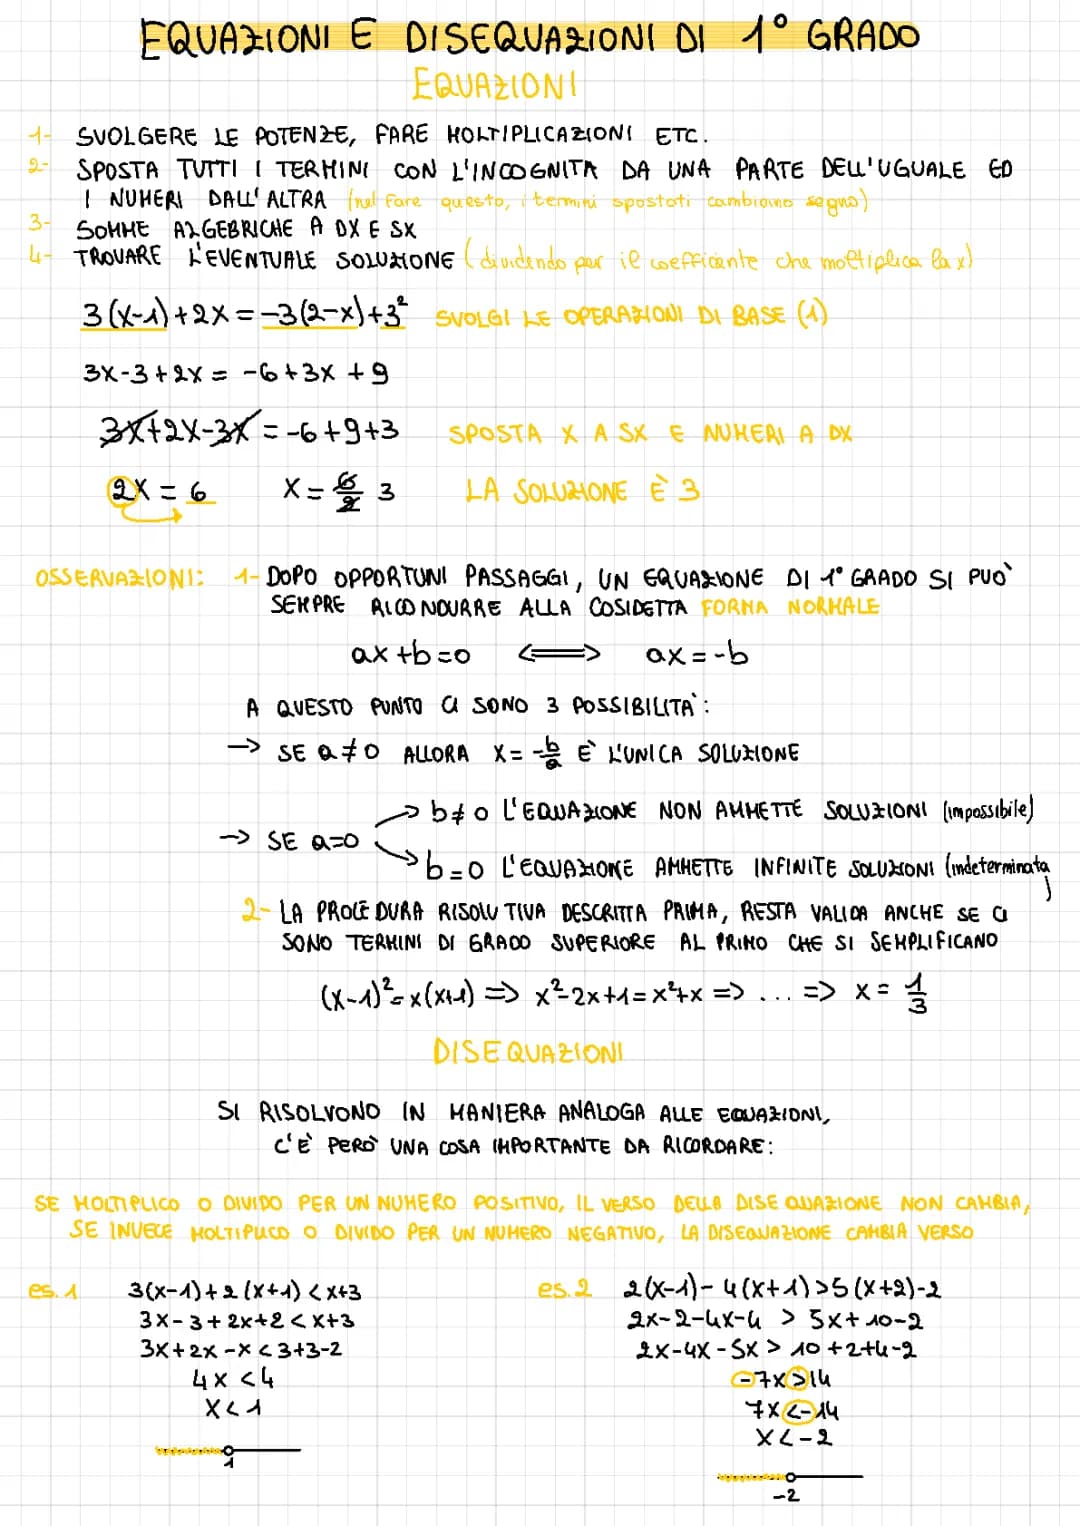 EQUAZIONI E DISEQUAZIONI DI 1° GRADO
EQUAZIONI
1- SVOLGERE LE POTENZE, FARE MOLTIPLICAZIONI ETC.
2- SPOSTA TUTTI I TERMINI CON L'INCOGNITA DA UNA PARTE DELL'UGUALE ED
I NUMERI DALL'ALTRA (nel fare questo, i termini spostati cambiano segno)
3- SOMME ALGEBRICHE A DX E SX
4- TROVARE L'EVENTUALE SOLUZIONE (dividendo per il coefficiente che moltiplica la x)
3(x-1)+2x=-3(2-x)+3² SVOLGI LE OPERAZIONI DI BASE (1)
3x-3+2x = -6+3x +9
3x+2x-3x = -6+9+3 SPOSTA X A SX E NUMERI A DX
2x = 6 x = 6/2 3 LA SOLUZIONE È 3
OSSERVAZIONI: 1- DOPO OPPORTUNI PASSAGGI, UN EQUAZIONE DI 1° GRADO SI PUO'
SEMPRE RICONDURRE ALLA COSIDETTA FORMA NORMALE
ax+b=0 <=> ax=-b
A QUESTO PUNTO CI SONO 3 POSSIBILITA':
→ SE a≠0 ALLORA x = -b/a E' L'UNICA SOLUZIONE
→ SE a=0
→ b≠0 L'EQUAZIONE NON AMMETTE SOLUZIONI (impossibile)
→ b=0 L'EQUAZIONE AMMETTE INFINITE SOLUZIONI (indeterminata)
2- LA PROCEDURA RISOLUTIVA DESCRITTA PRIMA, RESTA VALIDA ANCHE SE CI
SONO TERMINI DI GRADO SUPERIORE AL PRIMO CHE SI SEMPLIFICANO
(x-1)²=x(x+1) => x²-2x+1=x²+x => ... => x = 1/3
DISEQUAZIONI
SI RISOLVONO IN MANIERA ANALOGA ALLE EQUAZIONI,
C'È PERÒ UNA COSA IMPORTANTE DA RICORDARE:
SE MOLTIPLICO O DIVIDO PER UN NUMERO POSITIVO, IL VERSO DELLA DISEQUAZIONE NON CAMBIA,
SE INVECE MOLTIPLICO O DIVIDO PER UN NUMERO NEGATIVO, LA DISEQUAZIONE CAMBIA VERSO
es. 1 3(x-1)+2(x+1)<x+3
3x-3+2x+2<x+3
3x+2x-x<3+3-2
4x<4
x<1
1
es. 2 2(x-1)-4(x+1)>5(x+2)-2
2x-2-4x-4 > 5x+10-2
2x-4x-5x > 10+2+4-2
-7x>14
7x<-14
x<-2
-2